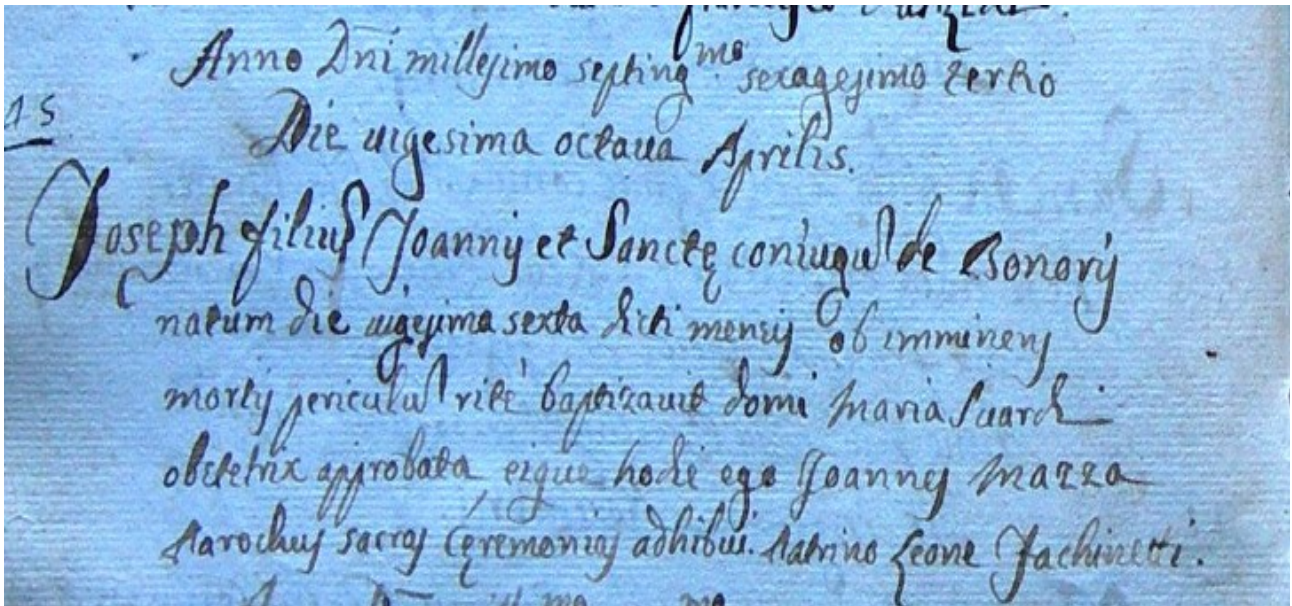 Anno Dñi millesimo septing.mo sexagesimo tertio
15
Die uigesima octaua Aprilis.
Joseph filius Joannis et Sanctę coniugũ de Bonoris
natum die uigesima sexta dicti mensis ob imminens
mortis periculũ ritè baptizauit domi Maria Suardi
obstetrix approbata eique hodie ego Joannes Mazza
Parochus sacras Cęremonias adhibui. Patrino Leone Jachinetti.